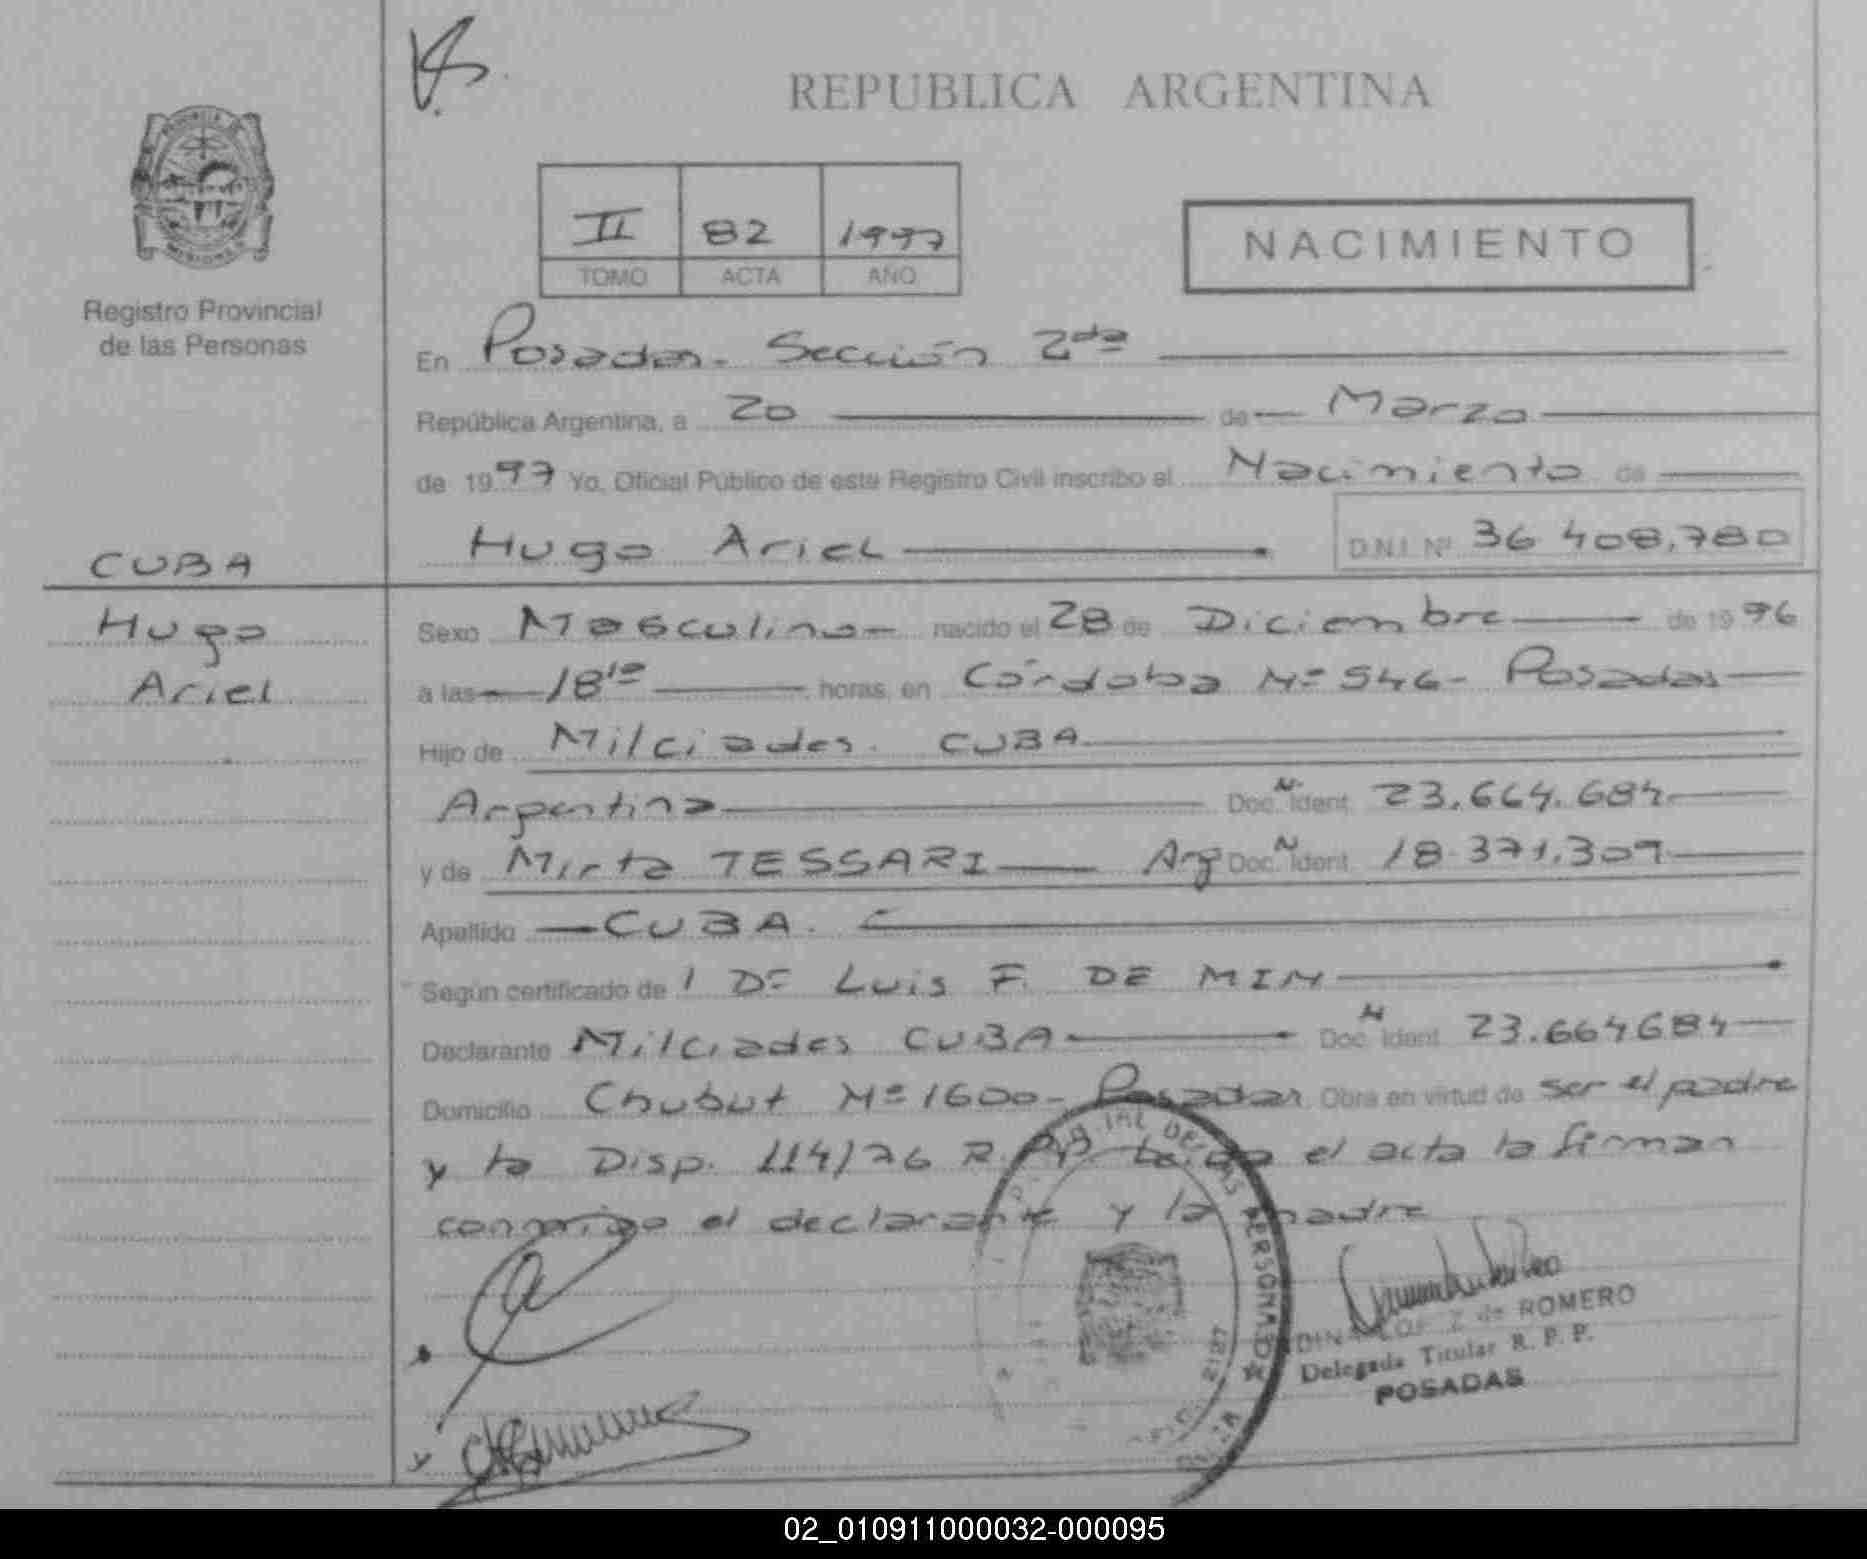 REPUBLICA ARGENTINA
II 82 1997
TOMO ACTA AÑO
NACIMIENTO
Registro Provincial
de las Personas
CUBA
Hugo
Ariel
En Posadas - Sección 2da
República Argentina, a 20 de Marzo
de 1997 Yo, Oficial Público de este Registro Civil inscribo el Nacimiento de
Hugo Ariel D.N.I. Nº 36 408.780
Sexo Masculino nacido el 28 de Diciembre de 1996
a las 18 horas, en Córdoba Nº 546 - Posadas
Hijo de Milciades CUBA
Argentina Doc. N. Ident. 23.664.684
y de Mirta TESSARI Arg Doc. N Ident. 18.371.309
Apellido CUBA.
Según certificado de 1 Dr Luis F. DE MIN
Declarante Milciades CUBA Doc. N Ident. 23.664684
Domicilio Chubut Nº 1600 - Posadas Obra en virtud de ser el padre
y la Disp. 114/76 R.P.P. Leida el acta la firman
conmigo el declarante y la madre
Z de ROMERO
Delegada Titular R. P. P.
POSADAS
02_010911000032-000095